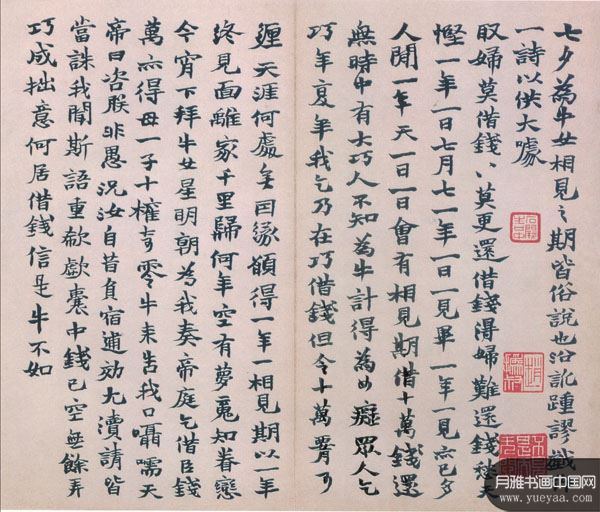 七夕為牛女相見之期皆俗說也沿訛踵謬戲作
一詩以供大噱
取婦莫借錢〻莫更還借錢得婦難還錢愁天
慳一年一日七月七一年一日一見畢一年一見亦已多
人間一年天一日一日會有相見期借十萬錢還
無時中有大巧人不知為牛計得為女癡眾人乞
巧年复年我乞乃在巧借錢但令十萬胥可
纏天涯何處無因緣願得一年一相見期以一年
終見面離家千里歸何年空有夢魂知眷戀
今宵下拜牛女星明朝為我奏帝庭乞借臣錢
萬亦得母一子十權奇零牛來告我口囁嚅天
帝曰咨朕非愚況汝自昔負宿逋効尤瀆請皆
當誅我聞斯語重欷歔囊中錢已空無餘弄
巧成拙意何居借錢信是牛不如
月雅书画中国网
www.yueyaa.com